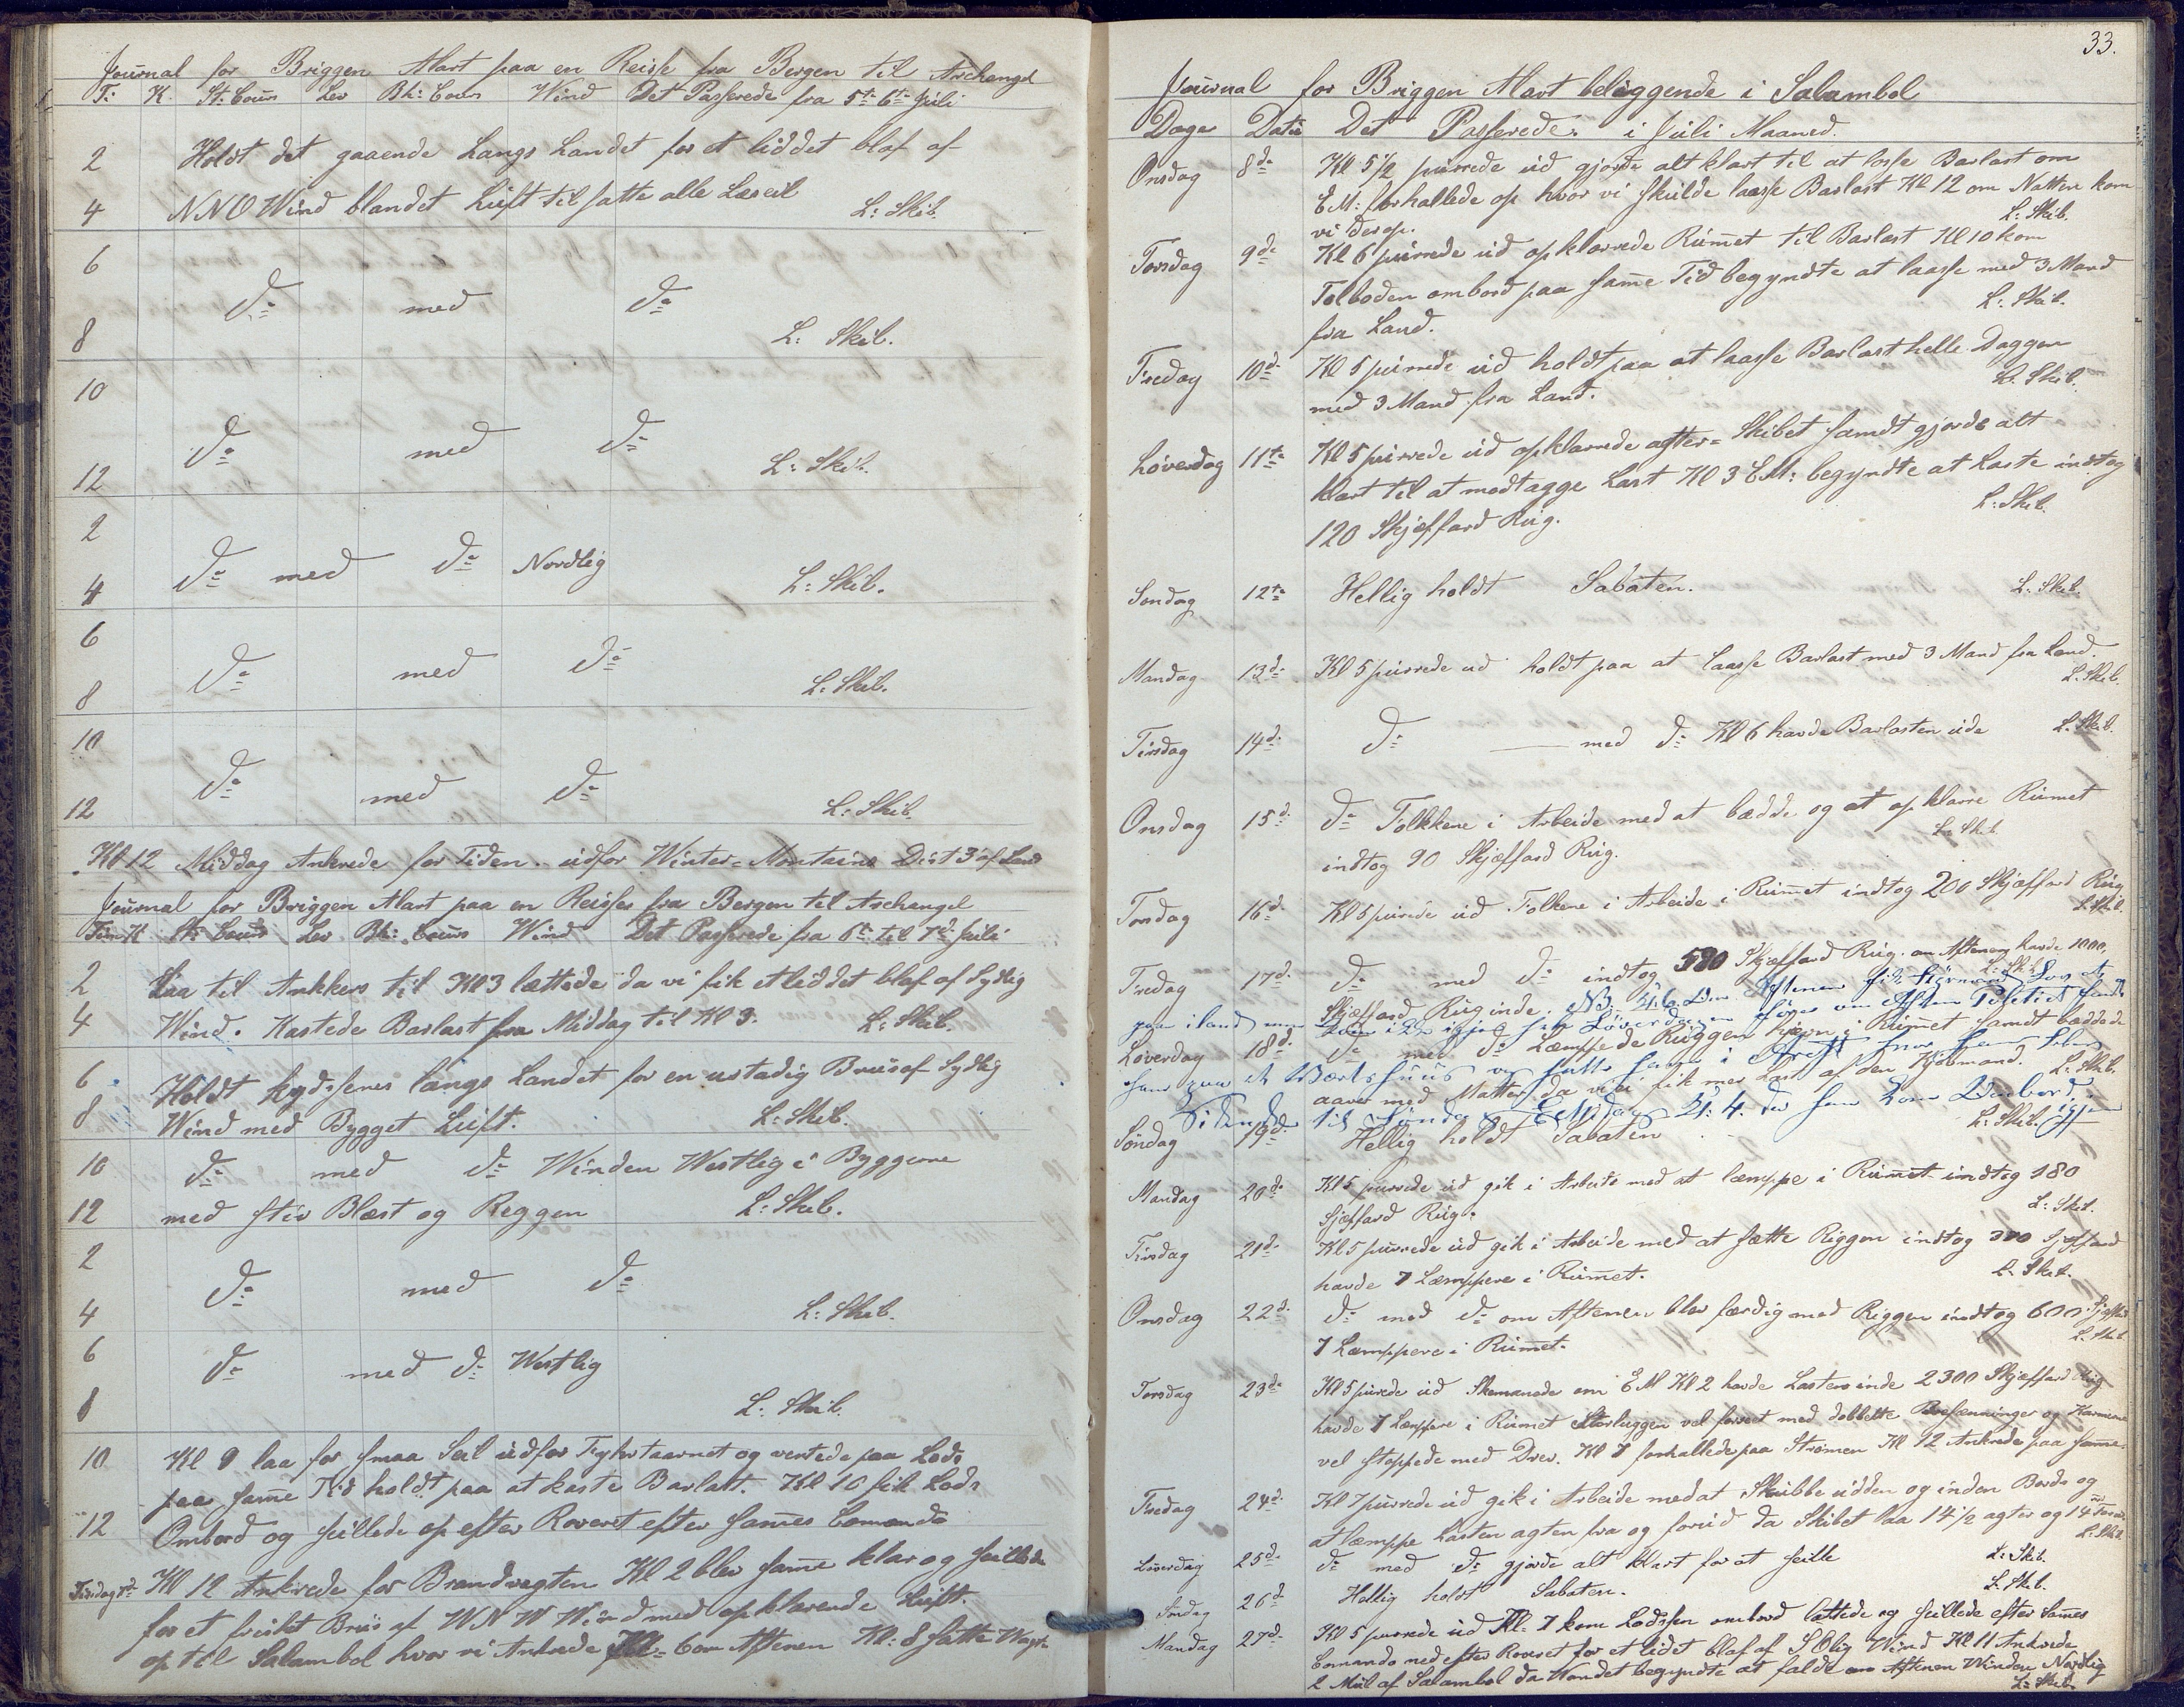 Journal for Briggen Alart paa en Reisse fra Bergen til Archengel
Ti: K. St: Cours Lev Bh: Cours Wind Det Passerede fra 5te 6te Juli
2 Holdt det gaaende Langs Landet for et liddet blaf af
4 NNO Wind blandet Luft til satte alle Læseil L: Skib.
6
do med do
8 L: Skib.
10
do med do
12 L: Skib.
2
do med do Nordlig
4 L: Skib.
6
do med do
8 L: Skib.
10
do med do
12 L: Skib.
Kl 12 Middag Ankrede for Tiden. udfor Winter-Montaine Dist 3' af Land
Journal for Briggen Alart paa en Reisse fra Bergen til Archangel
Tim K St: Cours Lev Bh: Cours Wind Det Passerede fra 6te til 7de Juli
2 Laa til Ankkers til Kl 3 lættede da vi fik et liddet blaf af Sydlig
4 Wind. Kastede Barlast fra Middag til Kl 3. L: Skib.
6 Holdt kydssenes langs Landet for en ustadig Briis af Sydlig
8 Wind med Bygget Luft. L: Skib.
10 do med do Winden Westlig i Byggerne
12 med stiv Blæst og Reggen L: Skib.
2
do med do
4 L: Skib.
6 do med do Westlig
8 L: Skib.
10 Kl 9 laa for smaa Seil udfor Fyhrtaarnet og ventede paa Lods
paa same Tid holdt paa at kaste Barlast. Kl 10 fik Lods
12 Ombord og seillede op efter Roveret efter sames Comando
Tirsdag 7de Kl 12 Ankrede for Brandvagten Kl 2 blev same klar og seillede
for et friskt Briis af WNW Wind med opklarende Luft.
op til Salambol hvor vi Ankrede Kl: 6 om Aftenen Kl: 8 satte Wagt
33.
Journal for Briggen Alart beliggende i Salambol
Dage Datu Det Passerede i Juli Maaned.
Onsdag 8de Kl 5 1/2 purrede ud gjorde alt klart til at losse Barlast om
EM: forhallede op hvor vi skulde laasse Barlast Kl 12 om Natten kom
vi derop. L: Skib.
Torsdag 9de Kl 6 purrede ud opklarrede Rumet til Barlast Kl 10 kom
Tolboden ombord paa same Tid begyndte at laasse med 3 Mand
fra Land. L: Skib.
Fredag 10de Kl 5 purrede ud holdt paa at laasse Barlast helle Daggen
med 3 Mand fra Land. L: Skib.
Løverdag 11te Kl 5 purrede ud opklarrede agter-Skibet samdt gjorde alt
klart til at modtagge Last Kl 3 EM: begyndte at Laste indtog
120 Skjæffard Rug. L: Skib.
Søndag 12te Hellig holdt Sabaten. L: Skib.
Mandag 13de Kl 5 purrede ud holdt paa at laasse Barlast med 3 Mand fra Land.
L: Skib.
Tirsdag 14de do med do Kl 6 havde Barlasten ude L: Skib.
Onsdag 15de do Folkkene i Arbeide med at bædde og at opklarre Rumet
indtog 90 Skjæffard Rug. L: Skib.
Torsdag 16de Kl 5 purrede ud Folkene i Arbeide i Rumet indtog 200 Skjæffard Rug
L: Skib.
Fredag 17de do med do indtog 580 Skjæffard Rug. om Aftenen havde 1000,
Skjæffard Rug inde. L: Skib.
NB. Kl. 6 Aftenen fik
paa iland men kom ikke igjen før Løverdagen om Aften
Løverdag 18de do med do Læmppede Ruggen hjem i Rumet samdt bæddede
paa et Værtshuus
aaver med Matter da vi ei fik mer Last af den Kjøbmand. L: Skib.
til Søndag Kl: 4. da han kom Ombord igjen
Søndag 19de Hellig holdt Sabaten L: Skib.
Mandag 20de Kl 5 purrede ud gik i Arbeide med at læmppe i Rumet indtog 180
Sjæffard Rug. L: Skib.
Tirsdag 21de Kl 5 purrede ud gik i Arbeide med at sætte Riggen indtog 300 Sjæffard
havde 7 Læmppere i Rumet. L: Skib.
Onsdag 22de do med do om Aftenen blev færdig med Riggen indtog 600 Sjæffard
7 Læmppere i Rumet. L: Skib.
Torsdag 23de Kl 5 purede ud Skemanede om EM Kl 2 havde Lasten inde 2300 Skjæffard Rug
havde 7 Læmppere i Rumet Storluggen vel forseet med dobbelte Presenninger og Karmene
vel stoppede med Drev. Kl 7 forhallede paa Strømen Kl 12 Ankrede paa same.
Fredag 24de Kl 7 purrede ud gik i Arbeide med at Skrubbe udden og inden Bords og
at læmppe Lasten agten fra og forud da Skibet laa 14 1/2 agter og 14 for
L: Skib.
Løverdag 25de do med do gjorde alt klart for at seille L: Skib.
Søndag 26de Hellig holdt Sabaten. L: Skib.
Mandag 27de Kl 5 purrede ud Kl: 7 kom Lodssen ombord lættede og seillede efter sames
Comando ned efter Roveret for et lidet blaf af SOlig Wind Kl 11 Ankrede
2 Miil af Salambol da Wandet begyndte at falde om Aftenen Winden Nordlig
L: Skib.